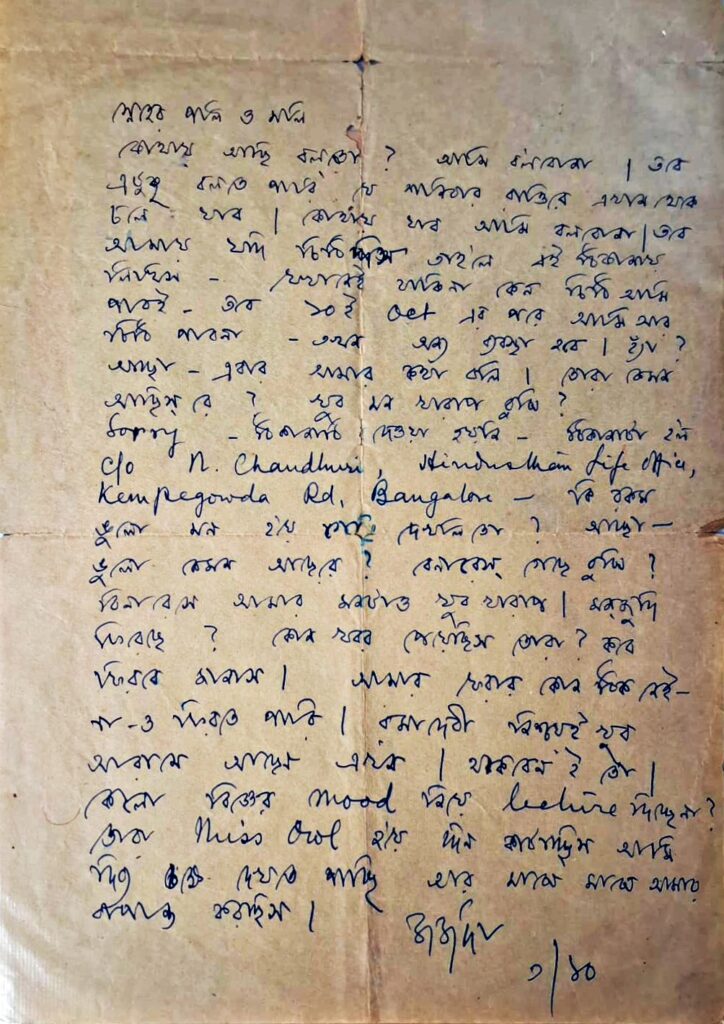 স্নেহের পলি ও মলি
কোথায় আছি বলতো ? আমি বলবোনা । তবে
এটুকু বলতে পারি যে শনিবার রাত্তিরে এখান থেকে
চলে যাব । কোথায় যাব আমি বলবোনা । তবে
আমায় যদি চিঠি দিস তাহলে এই ঠিকানায়
লিখিস – যেখানেই থাকিনা কেন চিঠি আমি
পাবই – তবে ১০ই Oct এর পরে আমি আর
চিঠি পাবনা – তখন অন্য ব্যবস্থা হবে । হ্যাঁ ?
আচ্ছা – এবার আমার কথা বলি । তোরা কেমন
আছিস্ রে ? খুব মন খারাপ বুঝি ?
Sorry – ঠিকানাটা দেওয়া হয়নি – ঠিকানাটা হল
c/o N. Chaudhuri, Hindusthan Life Office,
Kempegowda Rd, Bangalore – কি রকম
ভুলো মন হয়ে গেছে দেখলিতো ? আচ্ছা –
ভুলো কেমন আছেরে ? বেনারেস্ গেছে বুঝি ?
আমার মনটাও খুব খারাপ ।
ফিরেছে ? কোন খবর পেয়েছিস তোরা ? কবে
ফিরবে জানাস । আমার ফেরার কোন ঠিক নেই–
না-ও ফিরতে পারি । রমাদেবী নিশ্চয়ই খুব
আরামে আছেন এখন । থাকবেন ই তো ।
কেলো mood নিয়ে lecture দিচ্ছেনা ?
তোরা Miss Owl হয়ে দিন কাটাচ্ছিস আমি
দেখতে পাচ্ছি আর মাঝে মাঝে আমার
করছিস ।
১/১০